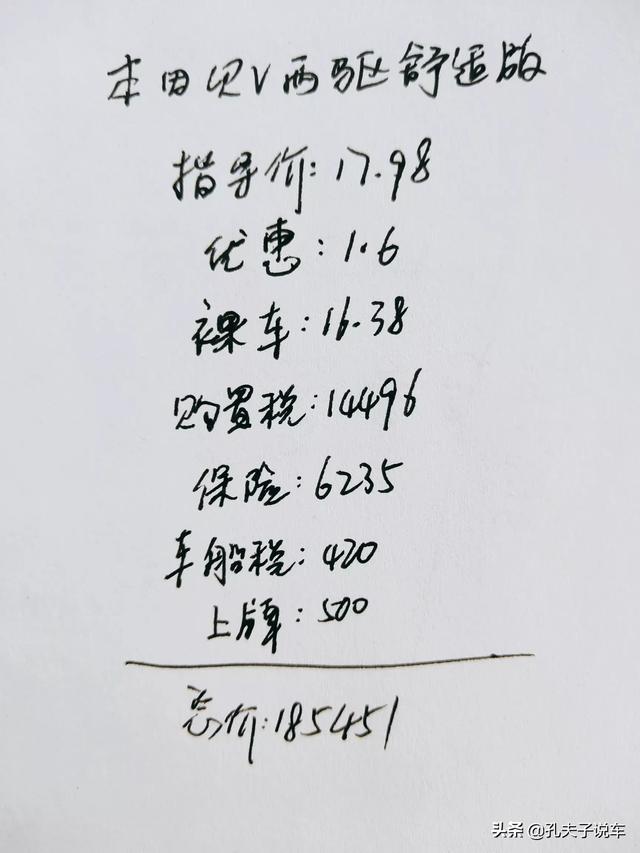 本田XRV两驱舒适版
指导价:17.98
优惠:1.6
裸车:16.38
购置税:14496
保险:6235
车船税:420
上牌:500
总价:185451
头条@孔夫子说车